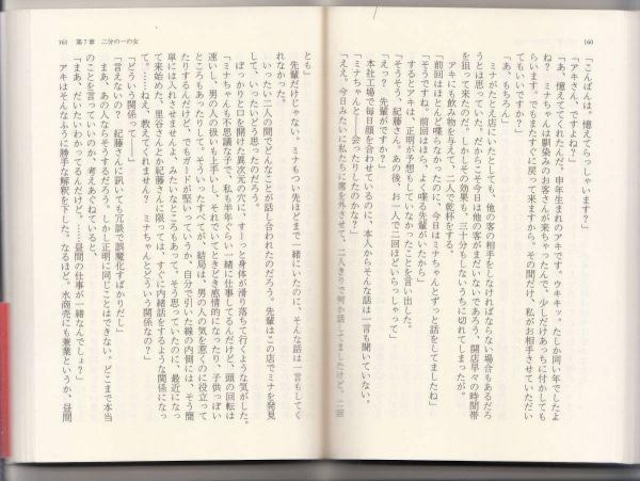 160
「こんばんは。憶えてらっしゃいます?」
「アキさん、ですよね?」
「あ、憶えててくれたんだ。申年生まれのアキです。ウキキッ。たしか同い年でしたよ
ね? ミナちゃんは馴染みのお客さんが来ちゃったんで、少しだけあっちに付かしても
らいます。でもまたすぐに戻って来ますから。その間だけ、私がお相手させていただい
てもいいですか?」
「あ、もちろん」
ミナがたとえ店にいたとしても、他の客の相手をしなければならない場合もあるだろ
うとは思っていた。だからこそ今日は他の客がまだいないであろう、開店早々の時間帯
を狙って来たのだ。しかしその効果も、三十分もしないうちに切れてしまったが。
アキにも飲み物を与えて、二人で乾杯をする。
「前回はほとんど喋らなかったのに、今日はミナちゃんとずっと話をしてましたね」
「そうですね。前回はほら、よく喋る先輩がいたから」
するとアキは、正明が予想もしていなかったことを言い出した。
「そうそう、紀藤さん。あの後、お一人で二回ほどいらっしゃって」
「えっ?」
「ミナちゃんと――会ったりしたのかな?」
本社工場で毎日顔を合わせているのに、本人からそんな話は一言も聞いていない。
「ええ。今日みたいに私たちに席を外させて、二人きりで何か話してましたけど、二回
161 第7章 二分の一の女
とも」
先輩だけじゃない。ミナもつい先ほどまで一緒にいたのに、そんな話は一言もしてく
れなかった。
いったい二人の間でどんなことが話し合われたのだろう。先輩はこの店でミナを発見
して、いったいどう思ったのだろう。
ぽっかりと口を開けた異次元の穴に、すーっと身体が滑り落ちて行くような気がした。
「ミナちゃんも不思議な子で、私も半年ぐらい一緒に仕事してるんだけど、頭の回転は
速いし、男の人の扱いも上手いし、それでいてときどき感情的になったり、子供っぽい
ところもあったりして。そういったすべてが、結局は、男の人の気を惹くのに役立って
たりするんだけど、でもガードが堅いっていうか、自分で引いた線の内側には、そう簡
単には入れさせませんよ、みたいなところもあって。そう思っていたのに、最近になっ
て来始めた、里谷さんとか紀藤さんに限っては、すぐに内緒話をするような関係になっ
て。……ねえ、教えてくれません? ミナちゃんとどういう関係なの?」
「どういう関係って――」
「言えないの? 紀藤さんに訊いても冗談で誤魔化すばかりだし」
まあ、あの人ならそうするだろう。しかし正明に同じことはできない。どこまで本当
のことを言っていいのか、考えあぐねていると、
「まあ、だいたいわかってるんだけど。……昼間の仕事が一緒なんでしょ?」
アキはそんなふうに勝手な解釈を下した。なるほど。水商売にも兼業というか、昼間